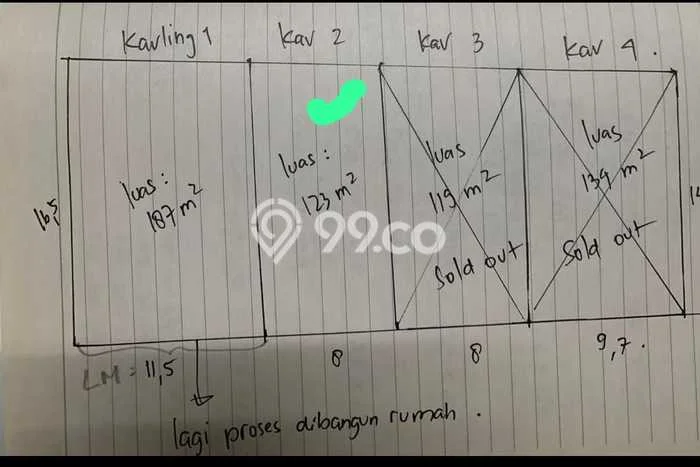 Kavling 1
Kav 2
Kav 3
Kav 4.
luas:
187 m²
luas:
123 m²
luas
119 m²
Sold out
luas
134 m²
Sold out
16,5
99.co
LM = 11,5
8
8
9,7.
lagi proses dibangun rumah.